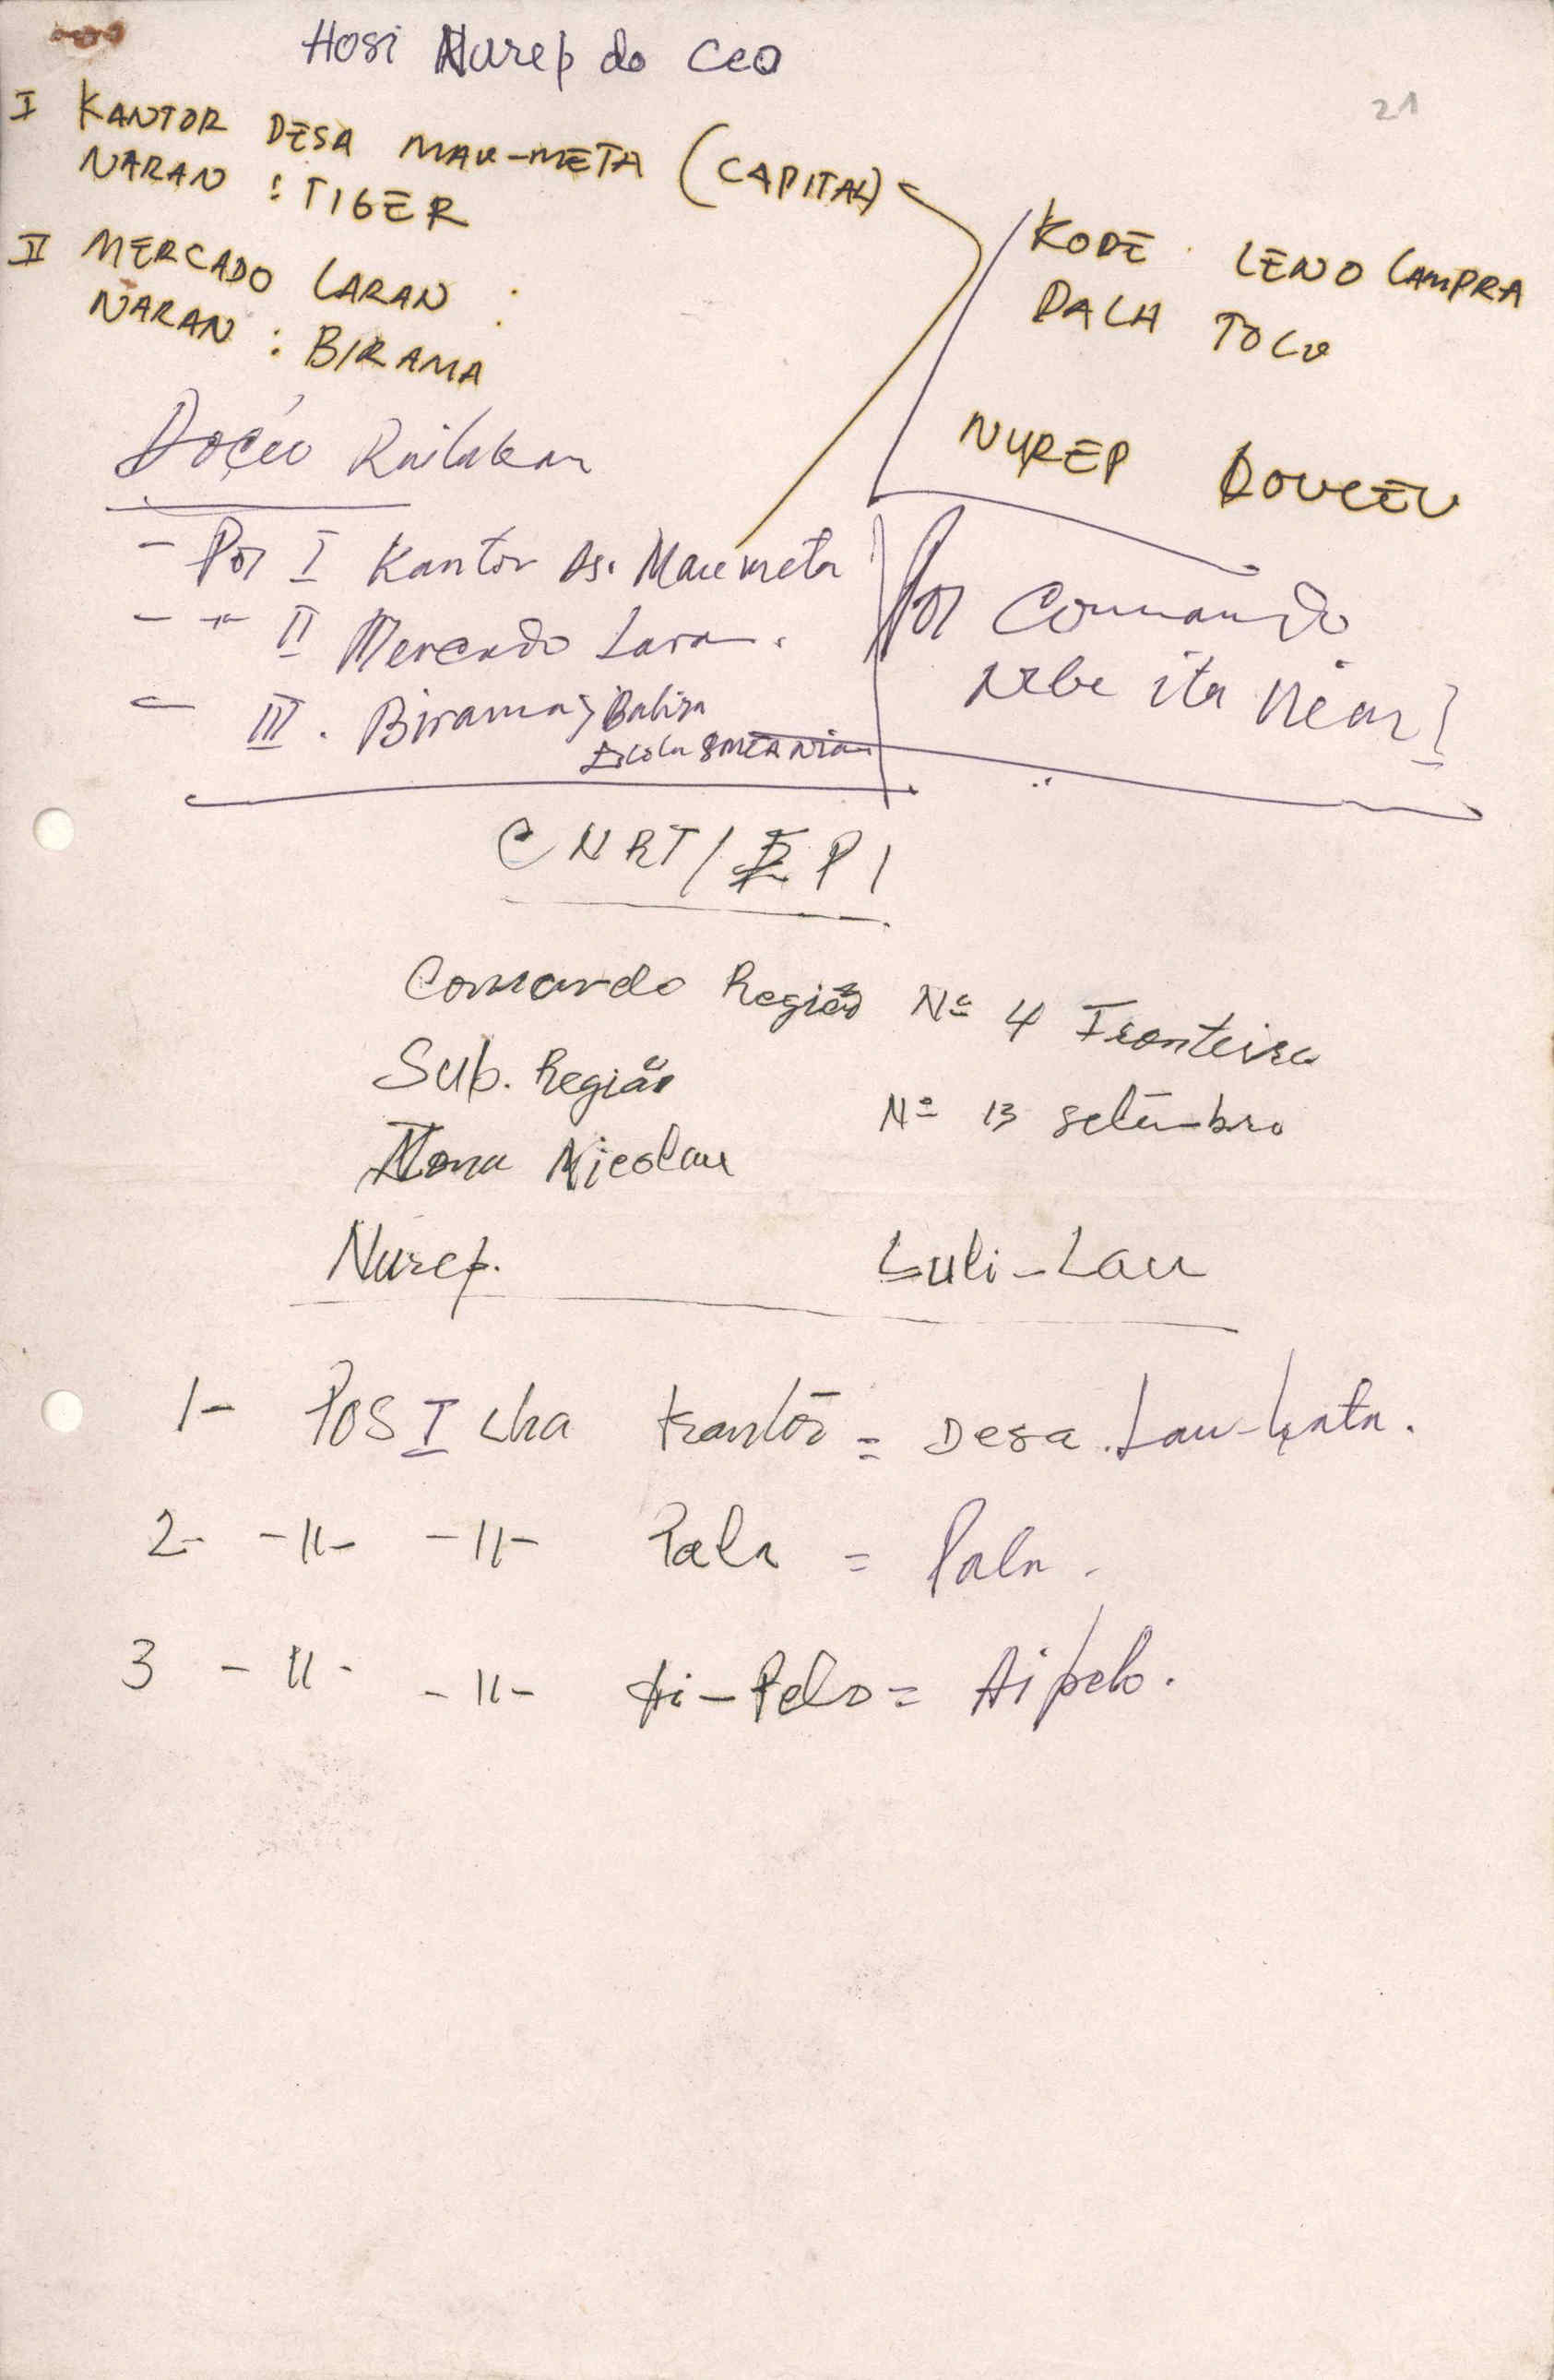 Hosi Nurep do Ceo
21
I KANTOR DESA MAU-META (CAPITAL)
NARAN : TIGER
II MERCADO LARAN :
NARAN : BIRAMA
KODE LENO CAMPRA
DALA TOLU
NUREP DOUCEU
Doçéu Railakan
- Pos I Kantor Ds. Maumeta
- -"- II Mercado Laran.
- III. Birama, Baliza
Escola
Pos Comando
nebe ita nian!
CNRT/ P I
Comando Região Nº 4 Fronteira
Sub. Região Nº 13 setembro
Zona Nicolau
Nurep. Luli-Lau
1- POS I iha kantor = Desa Lau-hata.
2- -11- -11- Pala = Pala.
3 -11- -11- Ai-Pelo = Aipelo.